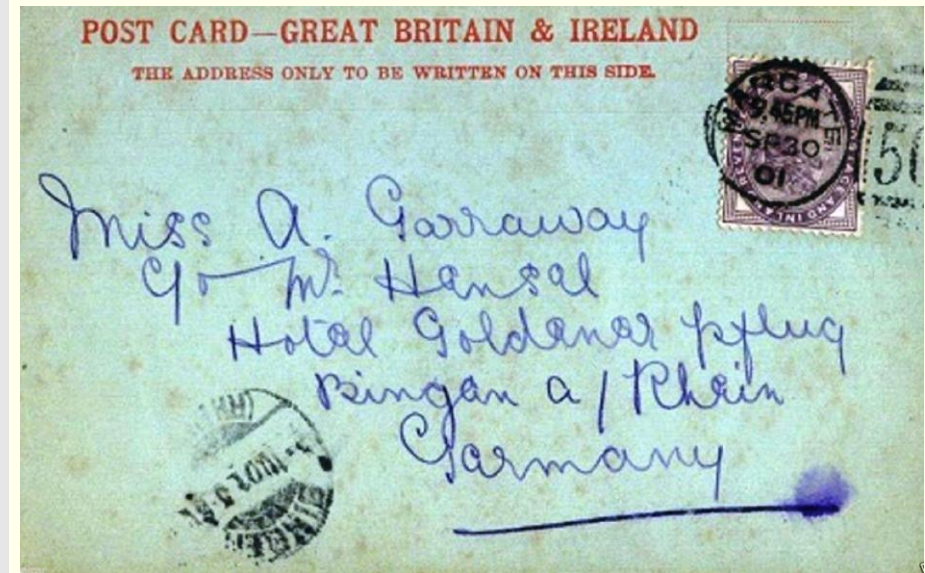 POST CARD—GREAT BRITAIN & IRELAND
THE ADDRESS ONLY TO BE WRITTEN ON THIS SIDE.
9.45PM
SP30
01
AND INLAND
Miss A. Garraway
c/o Mr. Hensel
Hotel Goldener Pflug
Bingen a/ Rhein
Germany